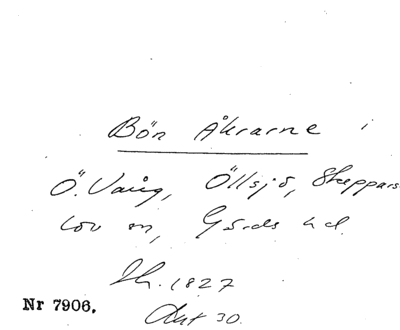 Bön Åkrarne i
Ö. Vång, Öllsjö, Skeppars
lov sn, Gärds hd.
Sk. 1827
Akt 30.
Nr 7906.